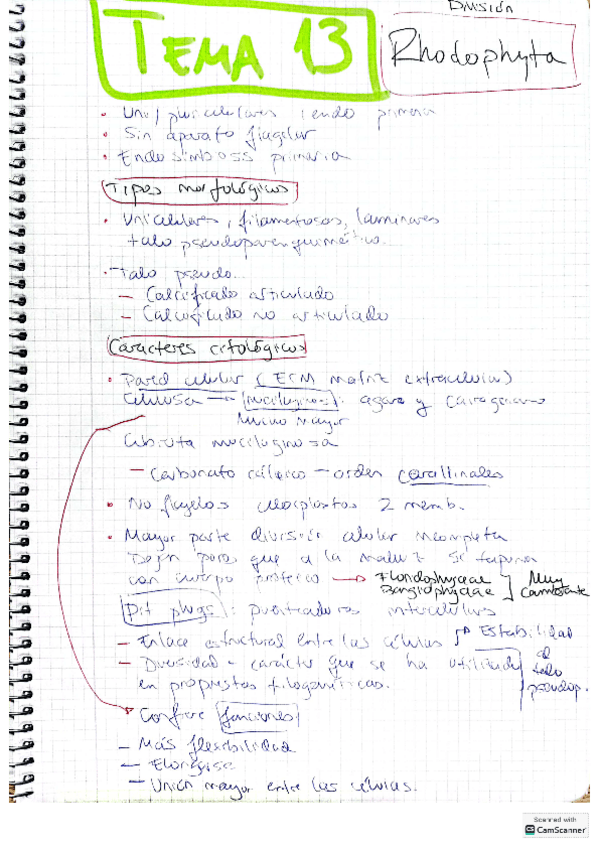 División
TEMA 13
Rhodophyta
• Uni/pluricelulares, endo primaria
• Sin aparato flagelar
• Endosimbiosis primaria
Tipos morfológicos
• Unicelulares, filamentosos, laminares
talo pseudoparenquimático.
• Talo pseudo...
– Calcificado articulado
– Calcificado no articulado
Caracteres citológicos
• Pared celular (ECM matriz extracelular)
Celulosa → mucilaginosos: agar y carragenano
mayor
Cubierta mucilaginosa
– Carbonato cálcico – orden corallinales
• No flagelos cloroplastos 2 memb.
• Mayor parte división celular incompleta
Dejan poros que a la madurez se tapona
con cuerpo proteico → Floridophyceae
Bangiophyceae
Muy
Cambiante
Pit plugs: puntuaciones intercelulares
– Enlace estructural entre las células → Estabilidad
al
talo
pseudop.
– Diversidad – carácter que se ha utilizado
en propuestas filogenéticas.
Confiere funciones
– Más flexibilidad
– Elongarse
– Unión mayor entre las células.
Scanned with
CamScanner